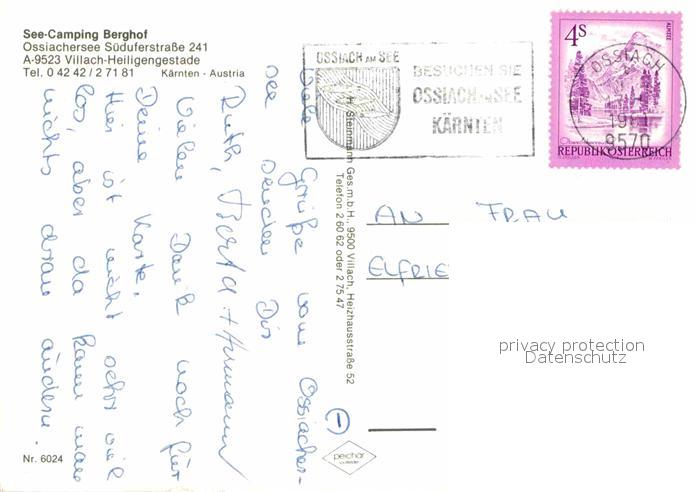 See-Camping Berghof
Ossiachersee Süduferstraße 241
A-9523 Villach-Heiligengestade
Tel. 0 42 42 / 2 71 81 Kärnten - Austria
OSSIACH AM SEE
BESUCHEN SIE
OSSIACH AM SEE
KÄRNTEN
4S
ALMSEE
REPUBLIK ÖSTERREICH
OSSIACH
9570
Viele Grüße vom Ossiacher-
see senden Dir
Ruth, Berta + Hermann
Vielen Dank noch für
Deine Karte.
Hier ist nicht sehr viel
los, aber da kann man
nichts dran ändern.
Steinmann Ges.m.b.H., 9500 Villach, Heizhausstraße 52
Telefon 2 60 62 oder 2 75 47
AN FRAU
ELFRIE
privacy protection
Datenschutz
Nr. 6024